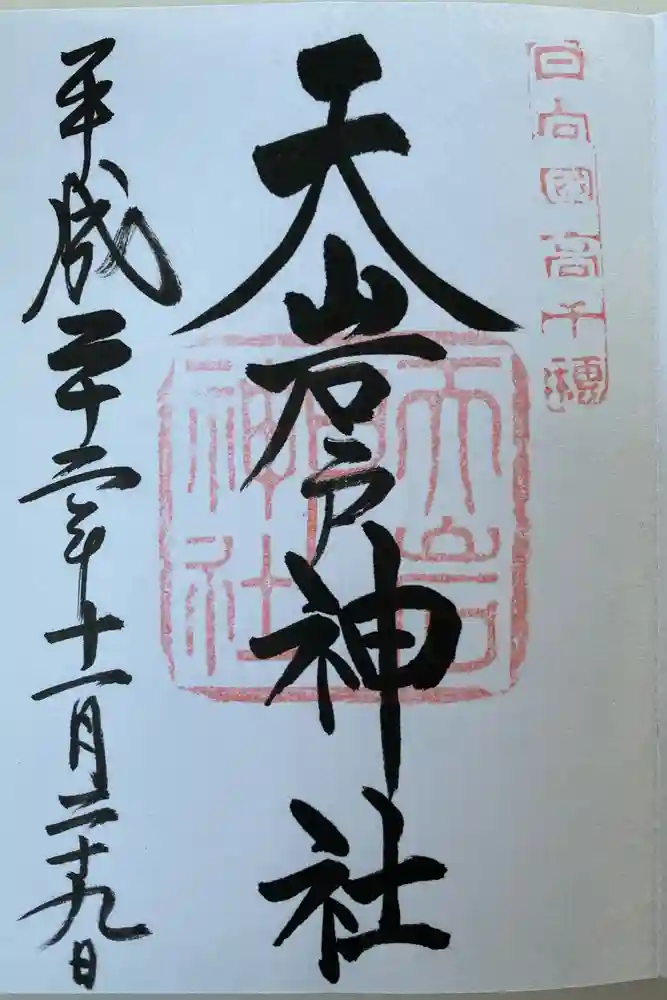 日向國高千穂
天岩戸神社
天岩
戸
神社
平成二十二年十一月二十九日